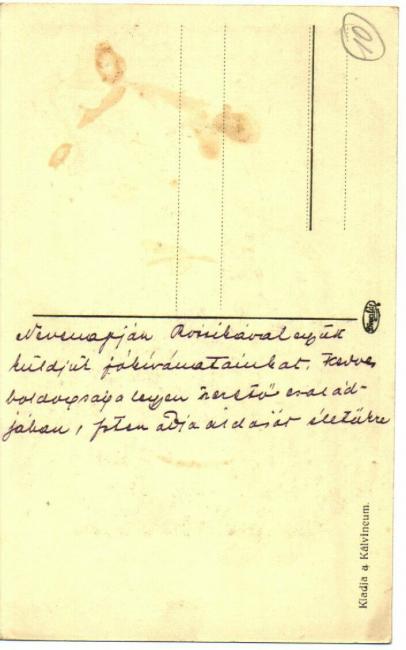 10
Nevenapján Rózsikával együtt
küldjük jókívánatainkat. Kedves
boldogsága legyen szerető család-
jában, Isten adja áldását életükre
Kiadja a Kálvineum.